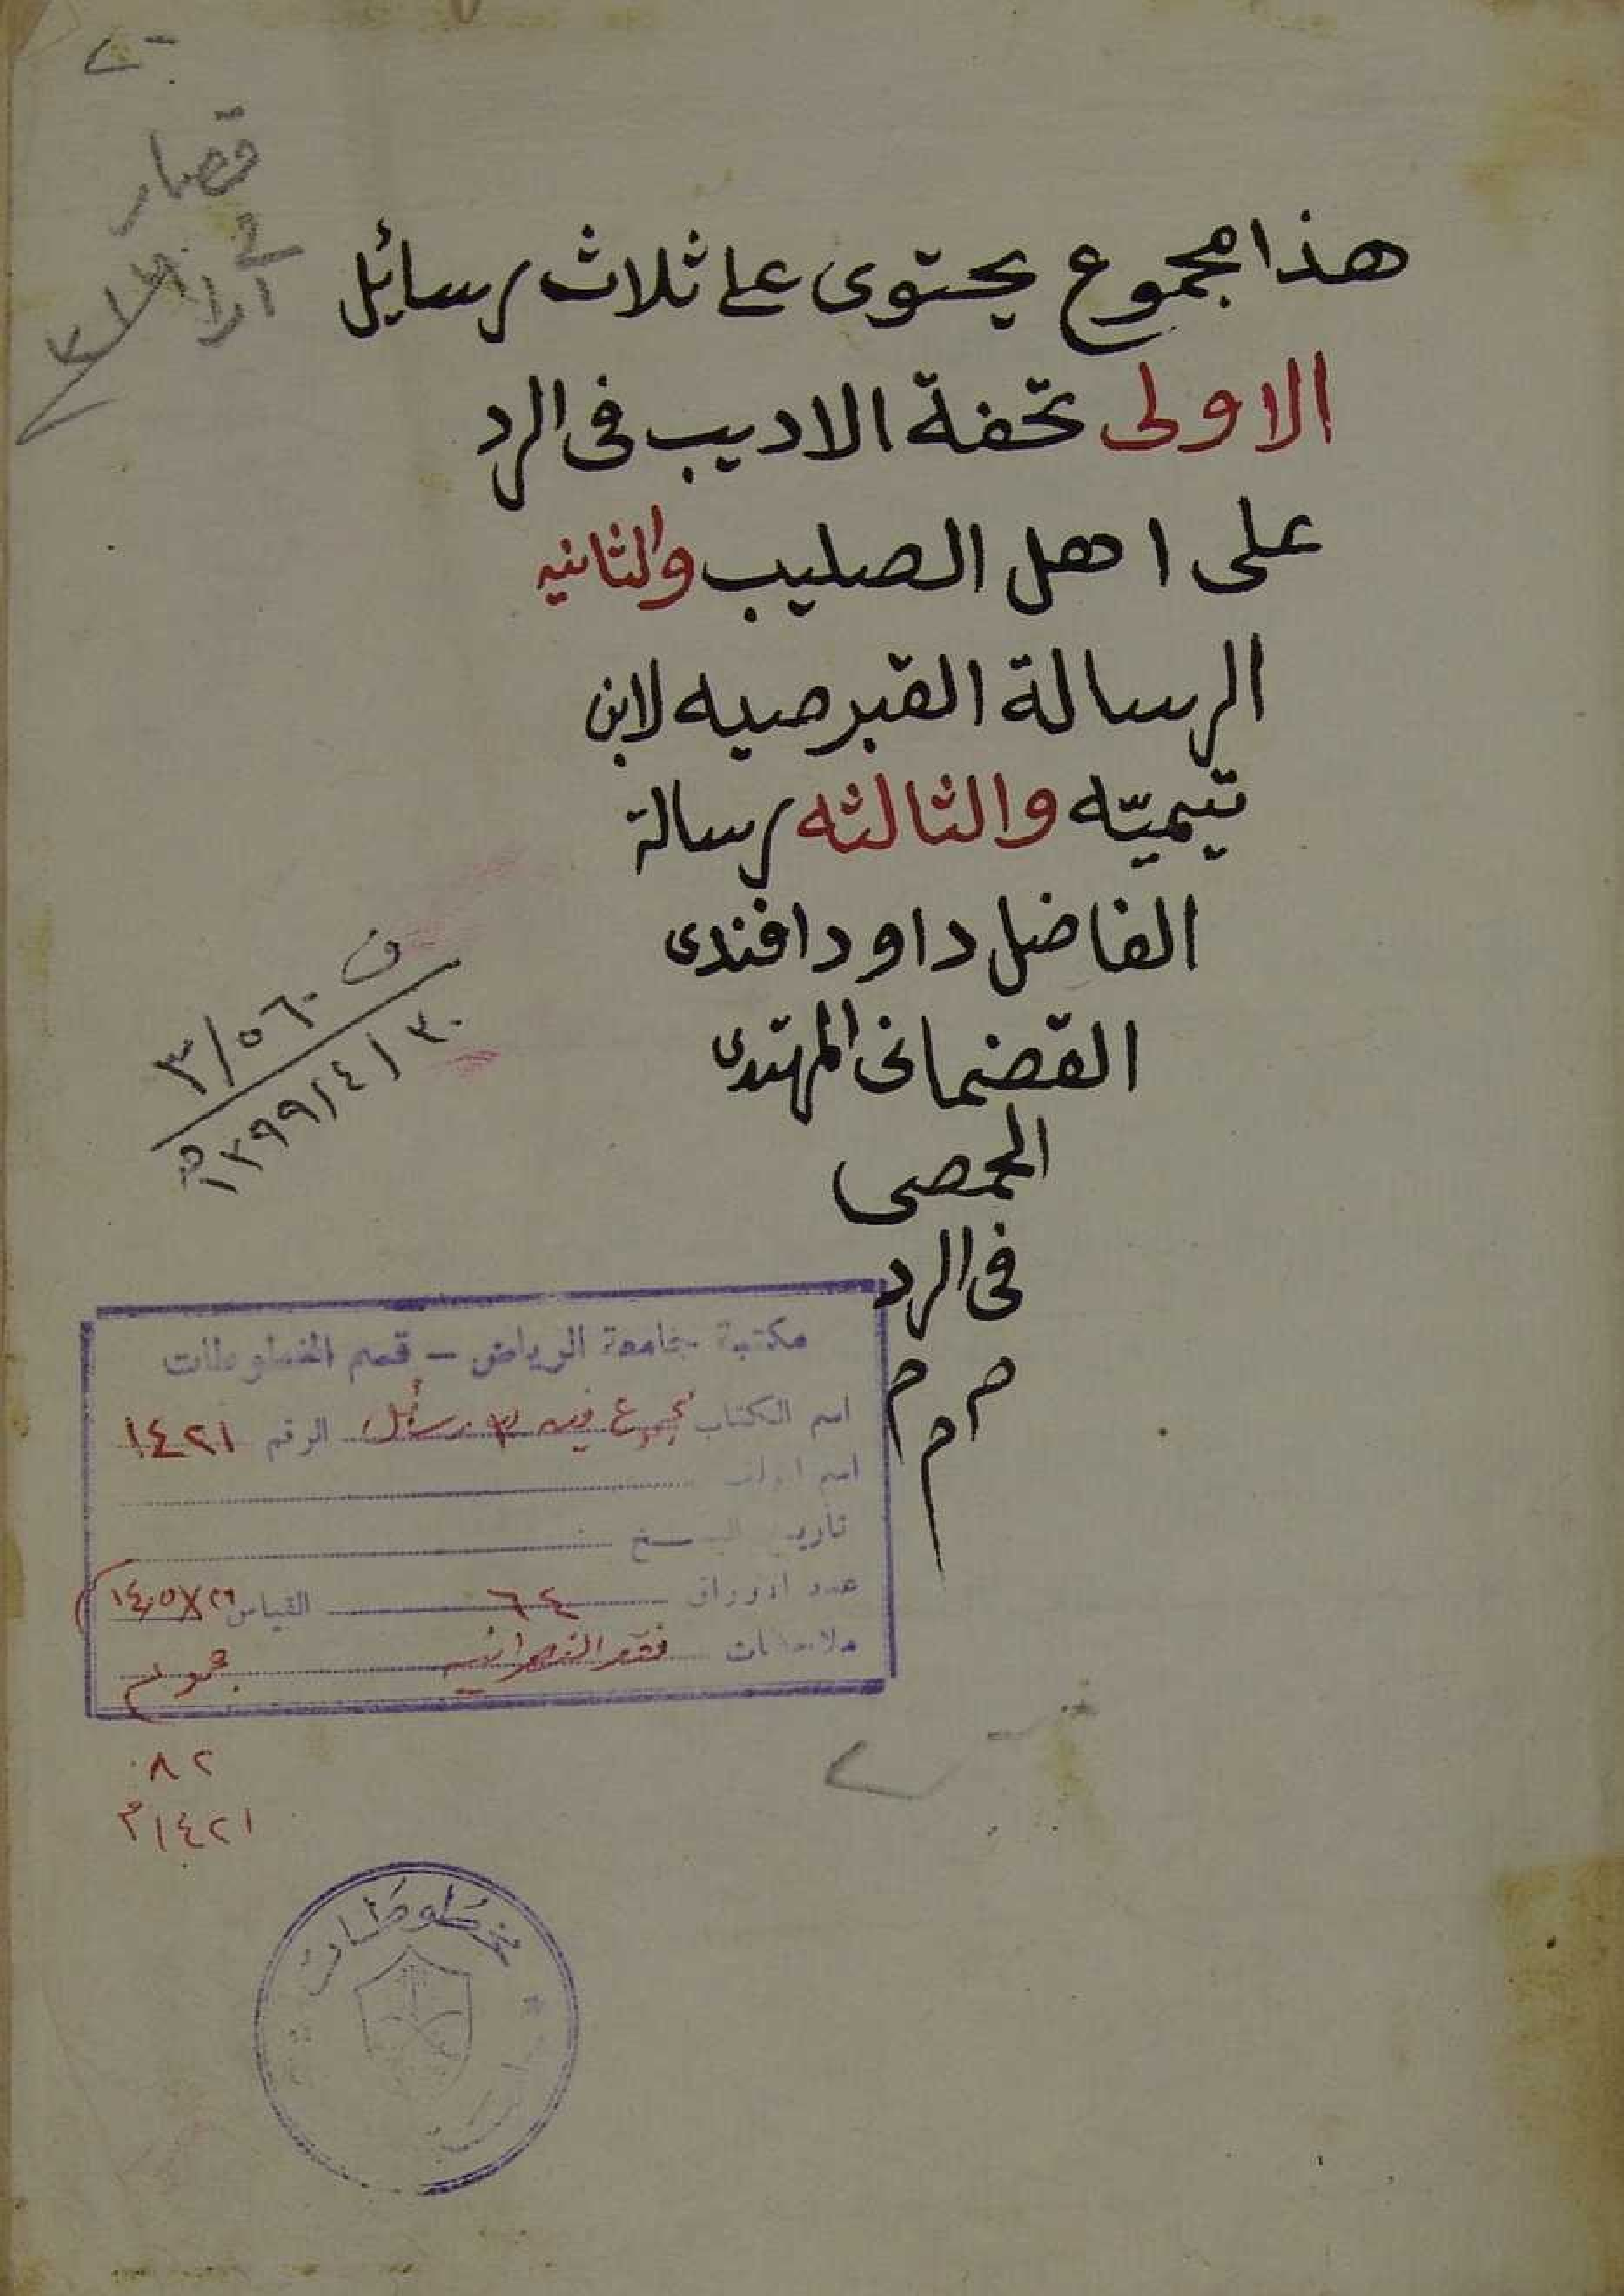 هذا مجموع يحتوى على ثلاث رسائل
الاولى تحفة الاديب فى الرد
على اهل الصليب والثانيه
الرسالة القبرصيه لابن
تيميّه والثالثه رسالة
الفاضل داود افندى
القضمانى المهتدى
الحمصى
فى الرد
م م
م
قصار
ف ٣/٥٦٠
١٣٩٩/٤/٣٠ ه
مكتبة جامعة الرياض - قسم المخطوطات
اسم الكتاب مجموع فيه ٣ رسائل الرقم ١٤٢١
اسم المؤلف
تاريخ النسخ
عدد الاوراق ٦٤ القياس ١٤٫٥×٢١
ملاحظات مجموع
٨٢
١٤٢١ م
مخطوطات